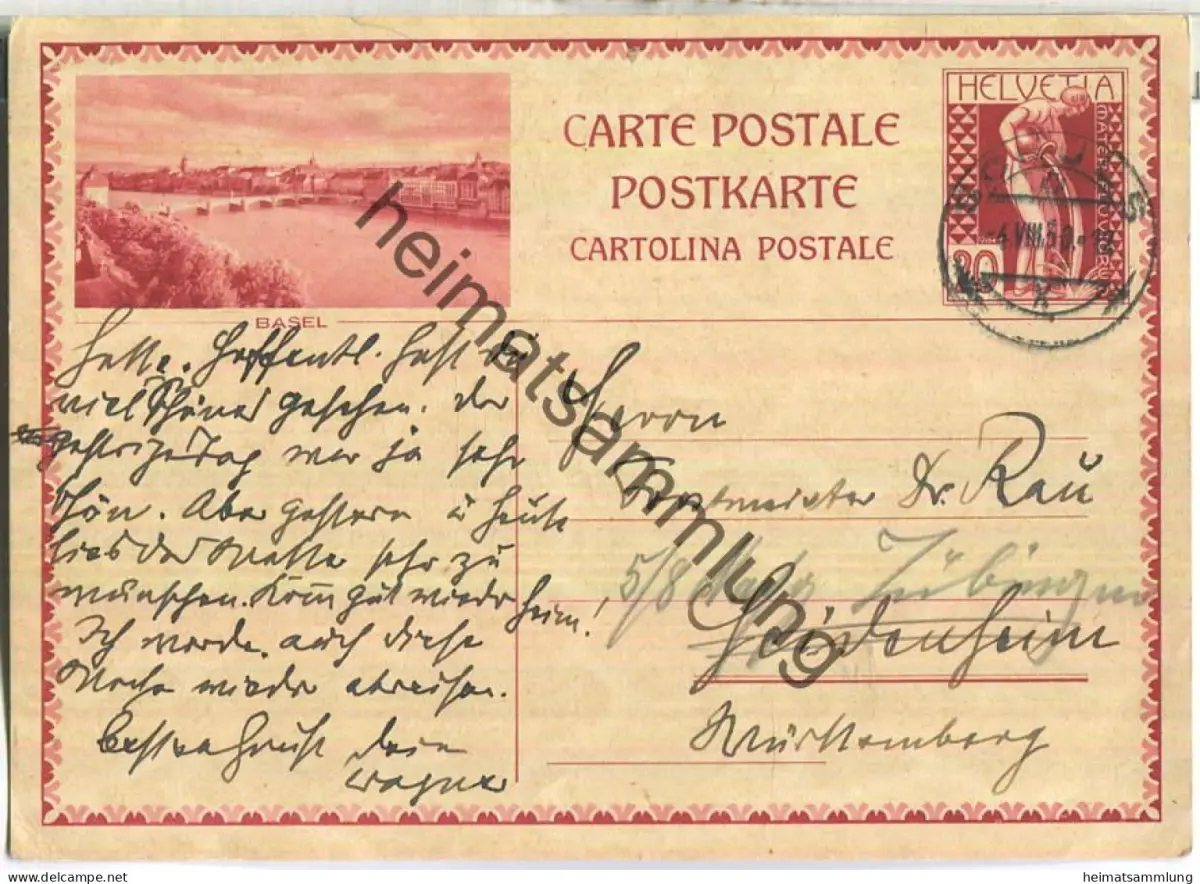 CARTE POSTALE
POSTKARTE
CARTOLINA POSTALE
HELVETIA
BASEL
hatte. Hoffentl. hast du
viel Schönes gesehen. Der
Tag war ja sehr
schön. Aber gestern u heute
lies das Wetter sehr zu
wünschen. Komm gut wieder heim!
Ich werde auch diese
Woche wieder abreisen.
besten Gruß Dein
Wagner
Herrn
Forstmeister Dr. Rau
5/8 Tübingen
Heidenheim
Württemberg
heimatsammlung
delcampe.net
heimatsammlung